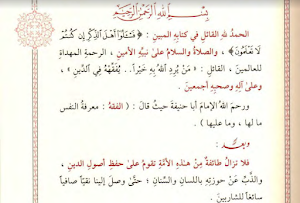 بِسْمِ اللَّهِ الرَّحْمَنِ الرَّحِيمِ
الحمدُ للهِ القائلِ في كتابِهِ المبينِ : ﴿ فَسْـَٔلُوٓاْ أَهْلَ ٱلذِّكْرِ إِن كُنتُمْ
لَا تَعْلَمُونَ ﴾ ، والصلاةُ والسلامُ على نبيِّهِ الأمينِ ، الرحمةِ المهداةِ
للعالمينَ ، القائلِ : « مَنْ يُرِدِ اللهُ بِهِ خَيْراً .. يُفَقِّهْهُ فِي الدِّينِ » ،
وعلى آلِهِ وصحبِهِ أجمعينَ .
ورحمَ اللهُ الإمامَ أبا حنيفةَ حيثُ قالَ : ( الفقهُ : معرفةُ النفسِ
ما لها ، وما عليها ) .
وبعد :
فلا تزالُ طائفةٌ من هذهِ الأمَّةِ تقومُ على حفظِ أصولِ الدينِ ،
والذبِّ عن حوزتِهِ باللسانِ والسِّنانِ ؛ حتَّى وصلَ إلينا نقيّاً صافياً
سائغاً للشاربينَ .